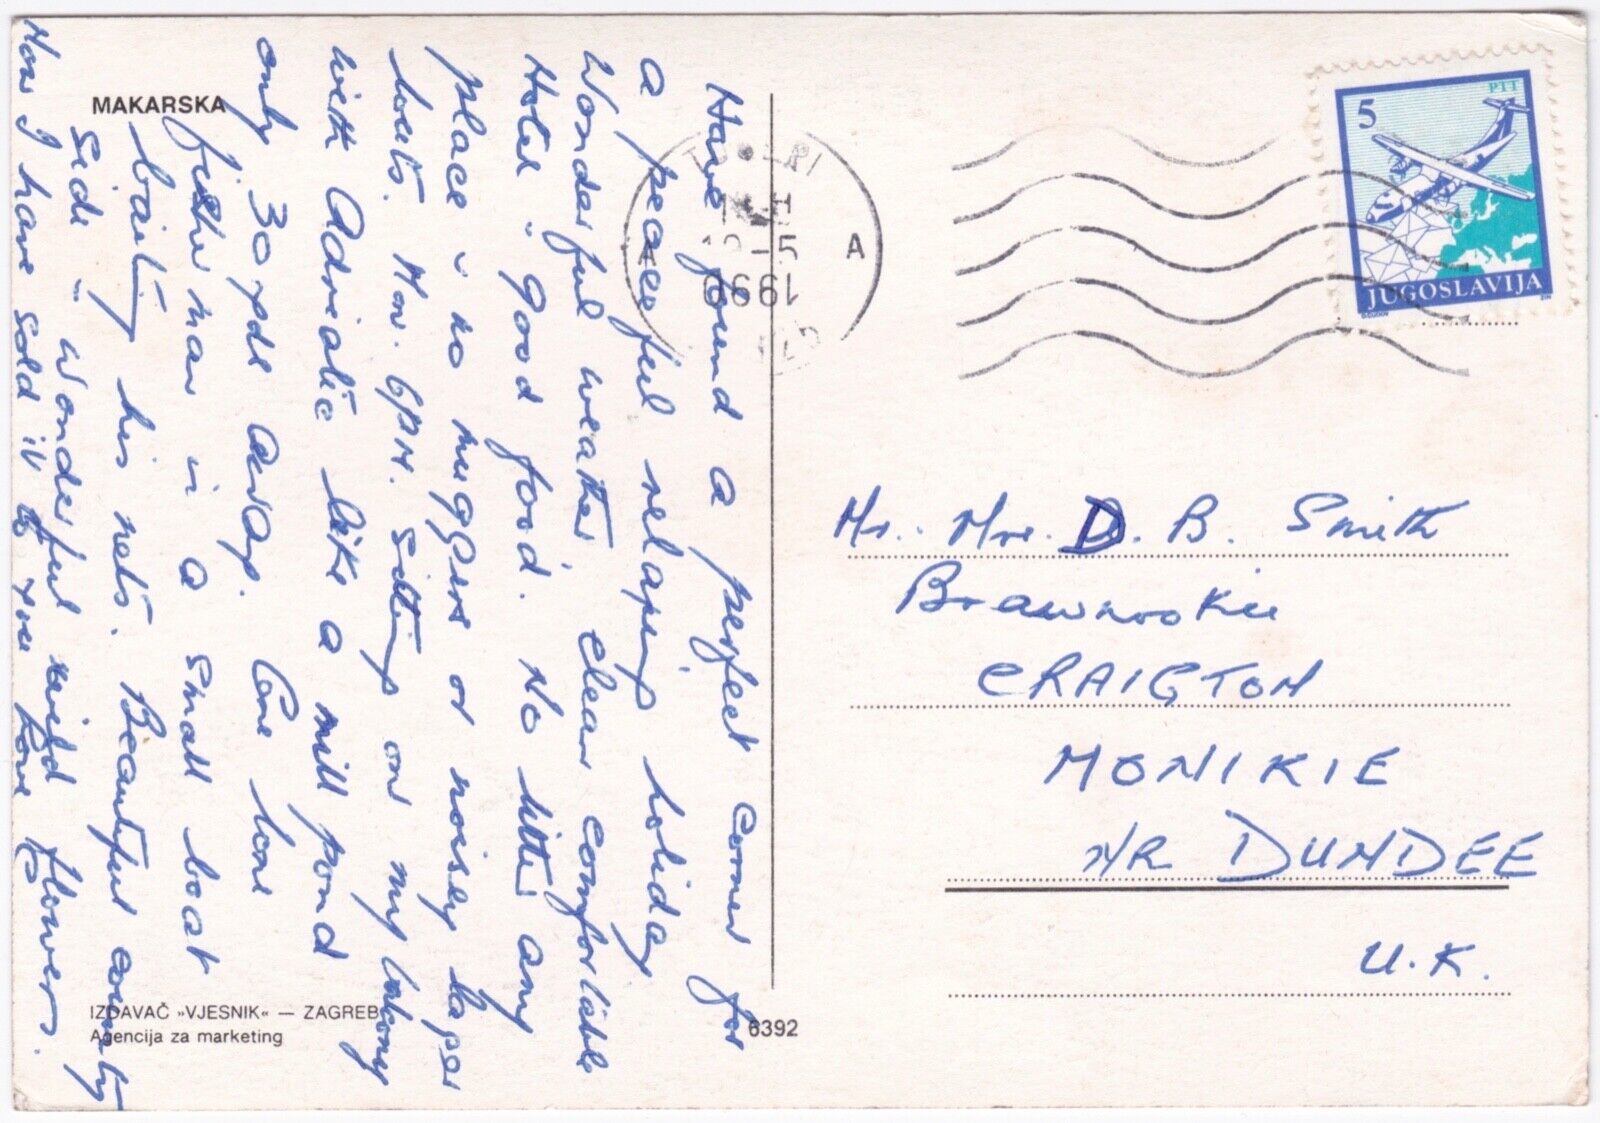 MAKARSKA
Have found a perfect corner for
a peaceful relaxing holiday
Wonderful weather clear comfortable
Hotel .. good food. No litter any
place - no muggers or noisy lager
louts. Mon. 6PM. Sitting on my balcony
with Adriatic like a mill pond
only 30 yds away. One lone
fisherman in a small boat
baiting his nets. Beautiful country
side .. wonderful wild flowers.
Now I have sold it to you
IZDAVAČ »VJESNIK« — ZAGREB
Agencija za marketing
6392
A
A
5
PTT
JUGOSLAVIJA
Mr. Mrs. D. B. Smith
CRAIGTON
MONIKIE
NR DUNDEE
U.K.